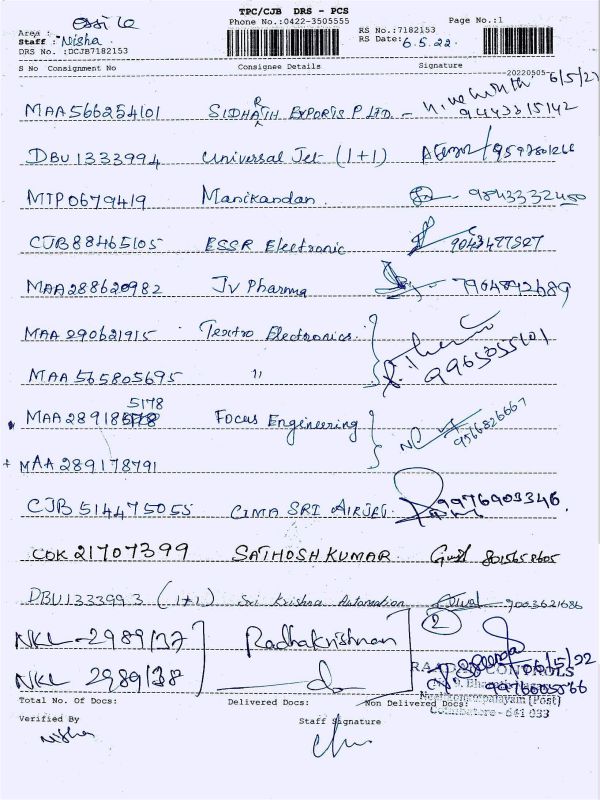 TPC/CJB DRS - PCS
Phone No.:0422-3505555
Page No.:1
Area :
Staff : Nisha
DRS No. :DCJB7182153
RS No.:7182153
RS Date: 6.5.22
S No Consignment No Consignee Details Signature
20220505
MAA566254101 SIDHARTH EXPORTS P LTD. 9443315142
DBU1333994 Universal Jet (1+1)
MTP0679419 Manikandan. 9843332450
CJB88465105 ESSR Electronic 9043477327
MAA288620982 Jv Pharma 7904892689
MAA290621915 Textro Electronics.
MAA565805695 " 9965055101
MAA289185178 Focus Engineering 9566826667
MAA289178791
CJB514475055 CIMA SRI AIRJET. 9976903346.
COK21707399 SATHOSH KUMAR.
DBU1333993 (1+1) Sri Krishna Automation 9003621686
NKL-2989/37 Radhakrishnan 2
NKL 2989/38 do 06/5/22
CONTROLS
9976605566
(Post)
Coimbatore - 641 033
Total No. Of Docs: Delivered Docs: Non Delivered Docs:
Verified By Staff Signature
Nisha